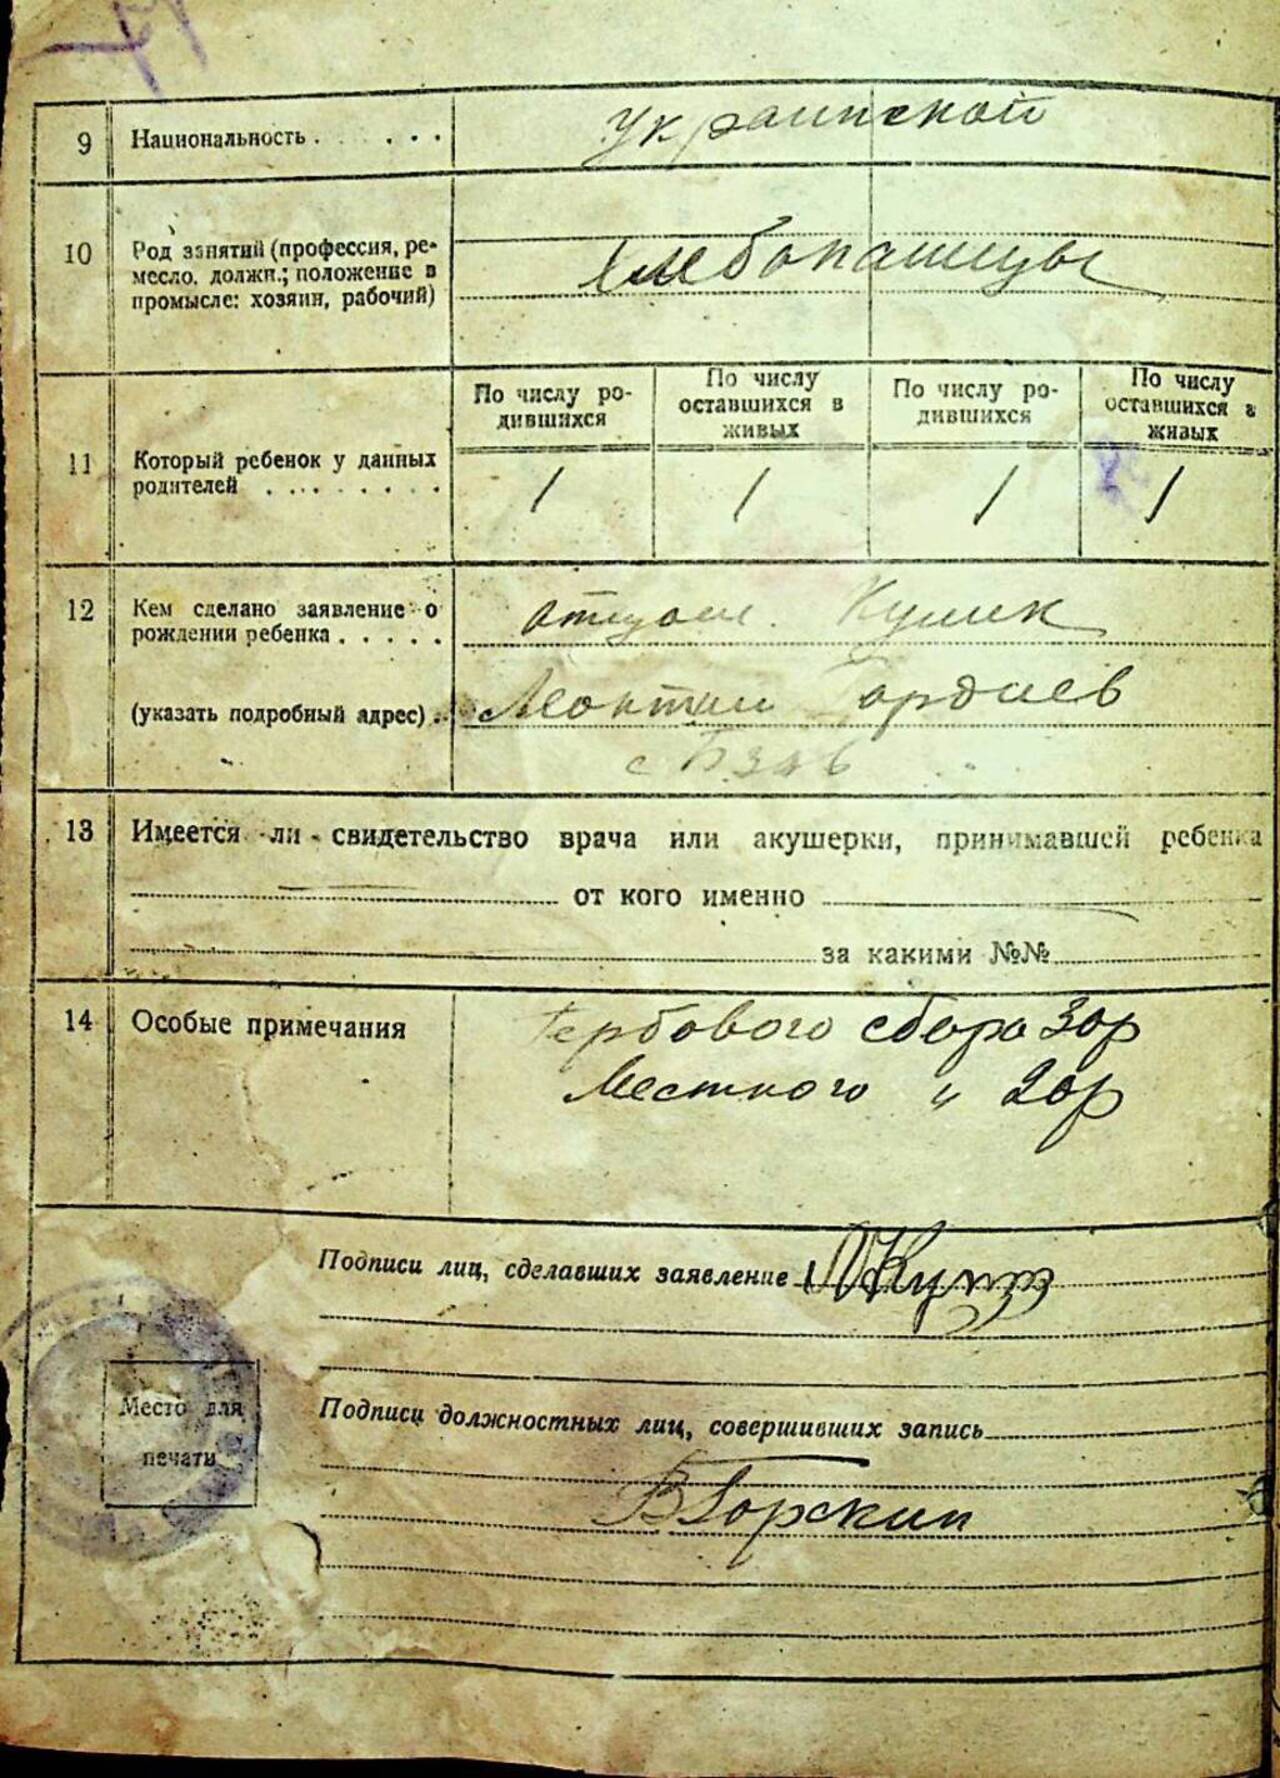 9 Национальность . . . . . . Украинской
10 Род занятий (профессия, ре-
месло, должн.; положение в
промысле: хозяин, рабочий)
Хлебопашцы
По числу ро-
дившихся
По числу
оставшихся в
живых
По числу ро-
дившихся
По числу
оставшихся в
живых
11 Который ребенок у данных
родителей . . . . . . . .
1 1 1 1
12 Кем сделано заявление о
рождении ребенка . . . . .
отцом
(указать подробный адрес) .
Гордиев
с
13 Имеется ли свидетельство врача или акушерки, принимавшей ребенка
от кого именно
за какими №№
14 Особые примечания
Гербового сбора 30р
Местного " 20р
Подписи лиц, сделавших заявление
Место для
печати
Подписи должностных лиц, совершивших запись